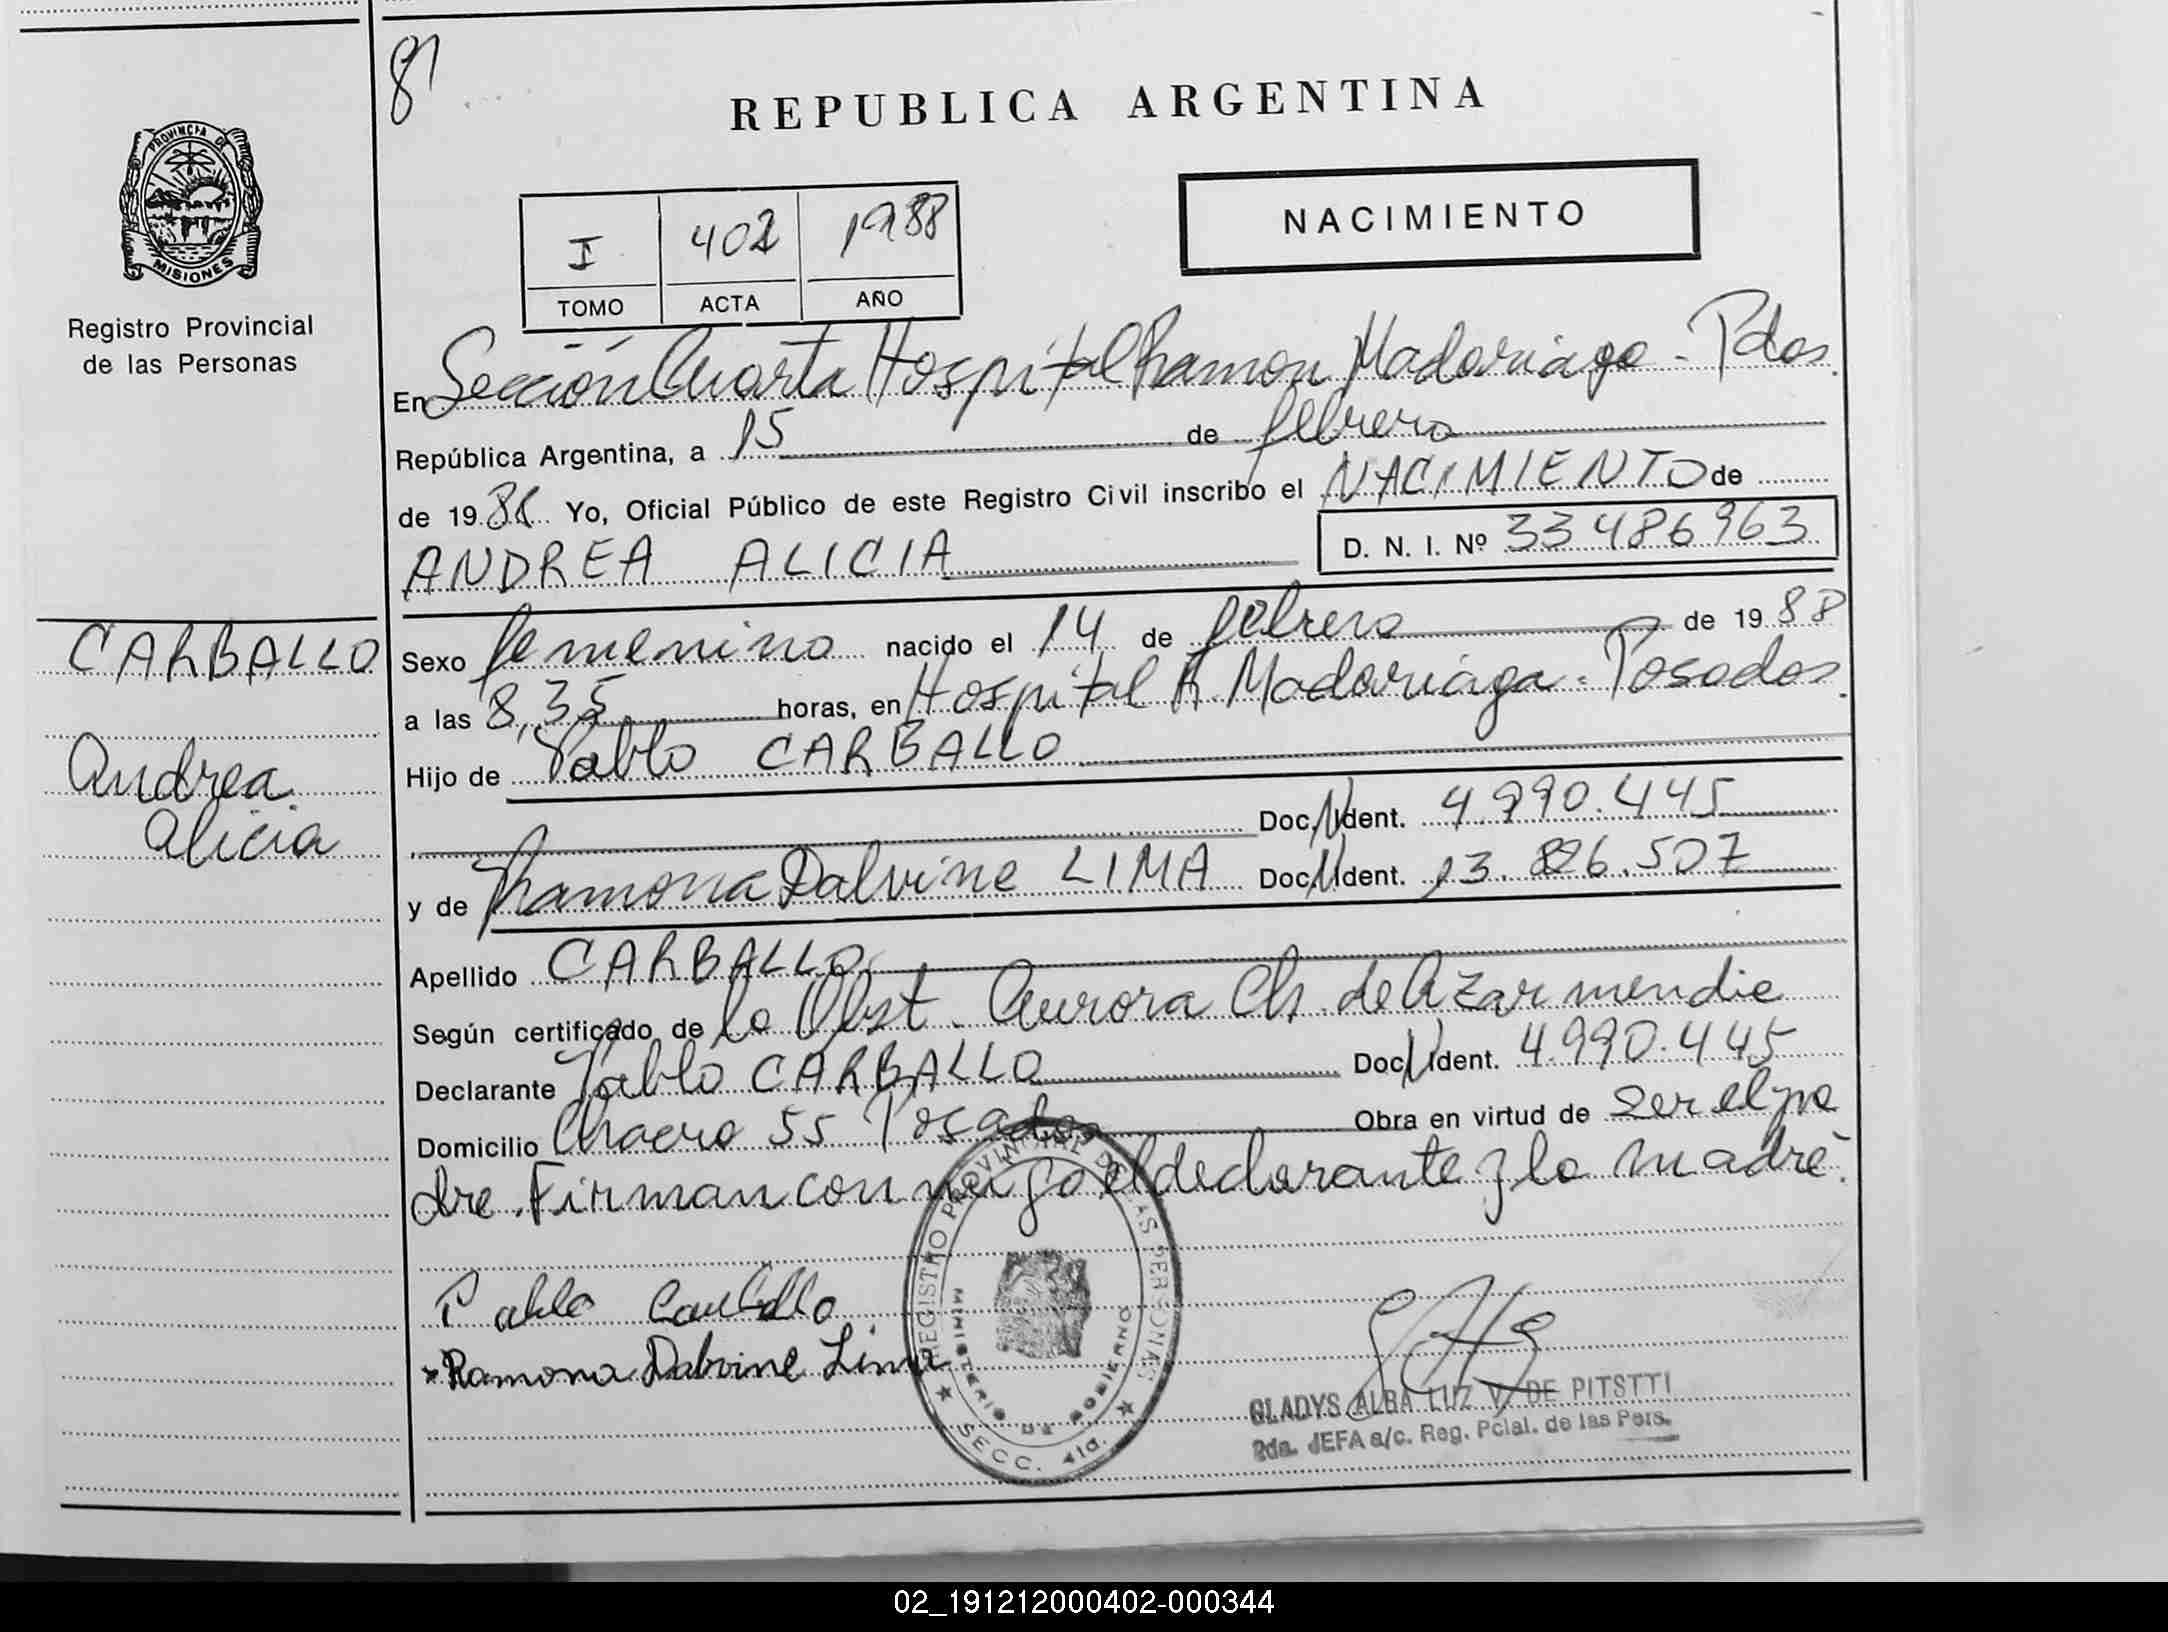 81
REPUBLICA ARGENTINA
PROVINCIA DE
MISIONES
Registro Provincial
de las Personas
NACIMIENTO
I 402 1988
TOMO ACTA AÑO
En Sección Cuarta Hospital Ramon Madariaga - Pdas.
República Argentina, a 15 de febrero
de 1988 Yo, Oficial Público de este Registro Civil inscribo el NACIMIENTO de
ANDREA ALICIA D. N. I. Nº 33486963
CARBALLO
Andrea
Alicia
Sexo femenino nacido el 14 de febrero de 1988
a las 8,35 horas, en Hospital R. Madariaga - Posadas.
Hijo de Pablo CARBALLO
Doc. Ident. 4.990.445
y de Ramona Dalvine LIMA Doc. Ident. 13.826.507
Apellido CARBALLO
Según certificado de la Obst. Aurora Ch. de Azarmendia
Declarante Pablo CARBALLO Doc. Ident. 4.990.445
Domicilio 55 Posadas Obra en virtud de ser el pa
dre. Firman conmigo el declarante y la madre.
Pablo Carballo
Ramona Dalvine Lima
REGISTRO PROVINCIAL DE LAS PERSONAS
MINISTERIO DE GOBIERNO
SECC. 4ta.
GLADYS ALBA LUZ V. DE PITSTTI
2da. JEFA a/c. Reg. Pcial. de las Pers.
02_191212000402-000344